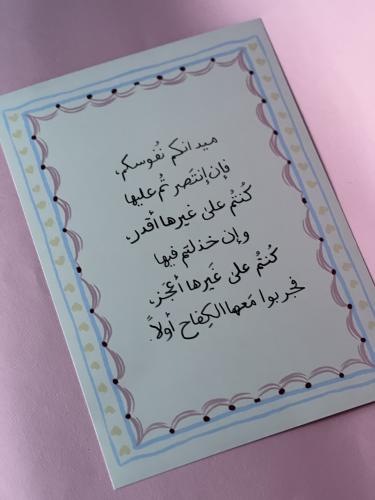 ميدانكم نفُوسكم،
فإن إنتَصرتُم عليها
كُنتُم على غيرها أقدر،
وإن خذلتم فيها
كُنتُم على غَيرها أعجز،
فجربوا مَعها الكِفاح أولاً.